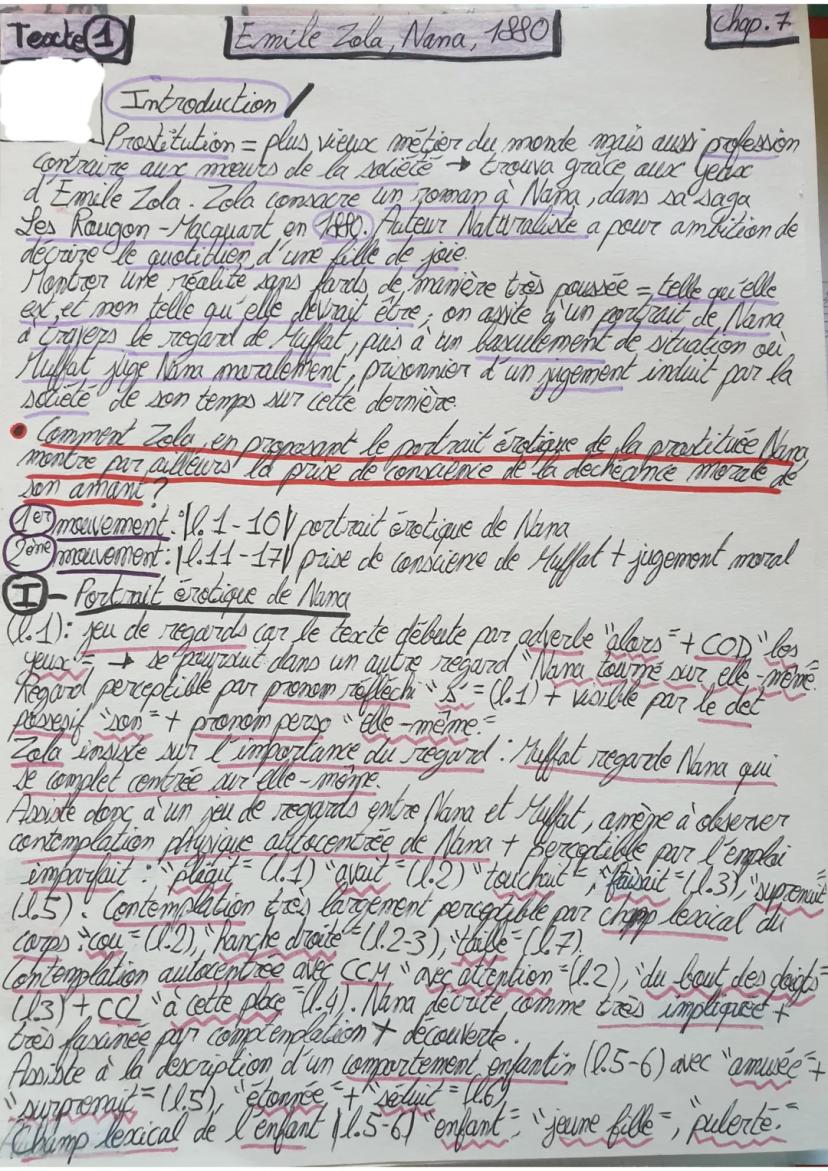 Texte 1
Emile Zola, Nana, 1880
Chap. 7
Introduction /
Prostitution = plus vieux métier du monde mais aussi profession
contraire aux mœurs de la société → trouva grâce aux yeux
d'Emile Zola. Zola consacre un roman à Nana, dans sa saga
Les Rougon-Macquart en 1880. Auteur Naturaliste a pour ambition de
décrire le quotidien d'une fille de joie.
Montrer une réalité sans fards de manière très poussée = telle qu'elle
est, et non telle qu'elle devrait être ; on assite à un portrait de Nana
à travers le regard de Muffat, puis à un basulement de situation où
Muffat juge Nana moralement, prisonnier d'un jugement induit par la
société de son temps sur cette dernière.
• Comment Zola, en proposant le portrait érotique de la prostituée Nana,
montre par ailleurs la prise de conscience de la déchéance morale de
son amant ?
1er mouvement : |l.1-10| portrait érotique de Nana
2ème mouvement : |l.11-17| prise de conscience de Muffat + jugement moral
I - Portrait érotique de Nana
(l.1) : jeu de regards car le texte débute par adverbe "alors" + COD "les
yeux" → se poursuit dans un autre regard "Nana tourné sur elle-même.
Regard perceptible par pronom réfléchi "s'" (l.1) + visible par le det
possesif "son" + pronom perso "elle-même."
Zola insiste sur l'importance du regard : Muffat regarde Nana qui
se complet centrée sur elle-même.
Assiste donc à un jeu de regards entre Nana et Muffat, amène à observer
contemplation physique autocentrée de Nana + perceptible par l'emploi
imparfait : "pliait" (l.1) "avait" (l.2) "touchait", "faisait" (l.3), "suprenait"
(l.5). Contemplation très largement perceptible par champ lexical du
corps : "cou" (l.2), "hanche droite" (l.2-3), "taille" (l.7).
Contemplation autocentrée avec CCM "avec attention" (l.2), "du bout des doigts"
(l.3) + CCL "à cette place" (l.4). Nana décrite comme très impliquée +
très fascinée par comptenplation + découverte.
Assiste à la description d'un comportement enfantin (l.5-6) avec "amusée" +
"surprenait" (l.5), "étonnée" + "séduit" (l.6)
Champ lexical de l'enfant |l.5-6| "enfant", "jeune fille", "puberté."